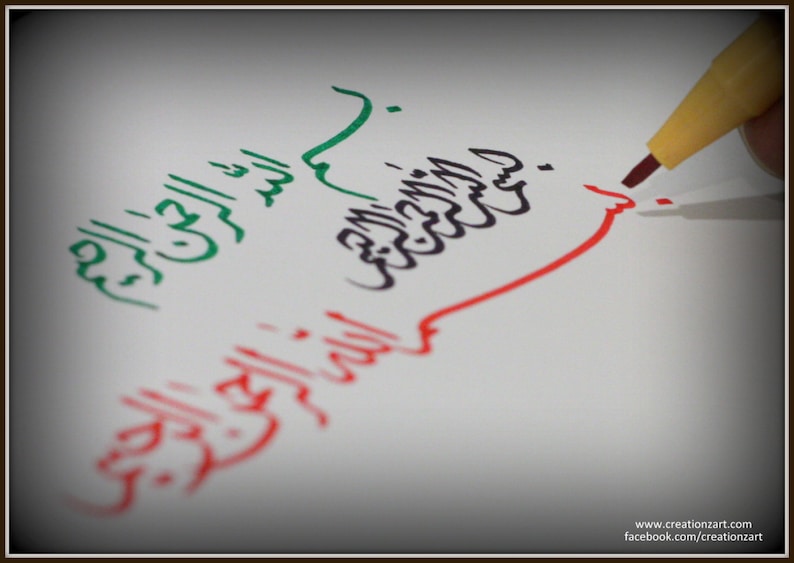 بسم الله الرحمن الرحيم
بسم الله الرحمن الرحيم
بسم الله الرحمن الرحيم
www.creationzart.com
facebook.com/creationzart